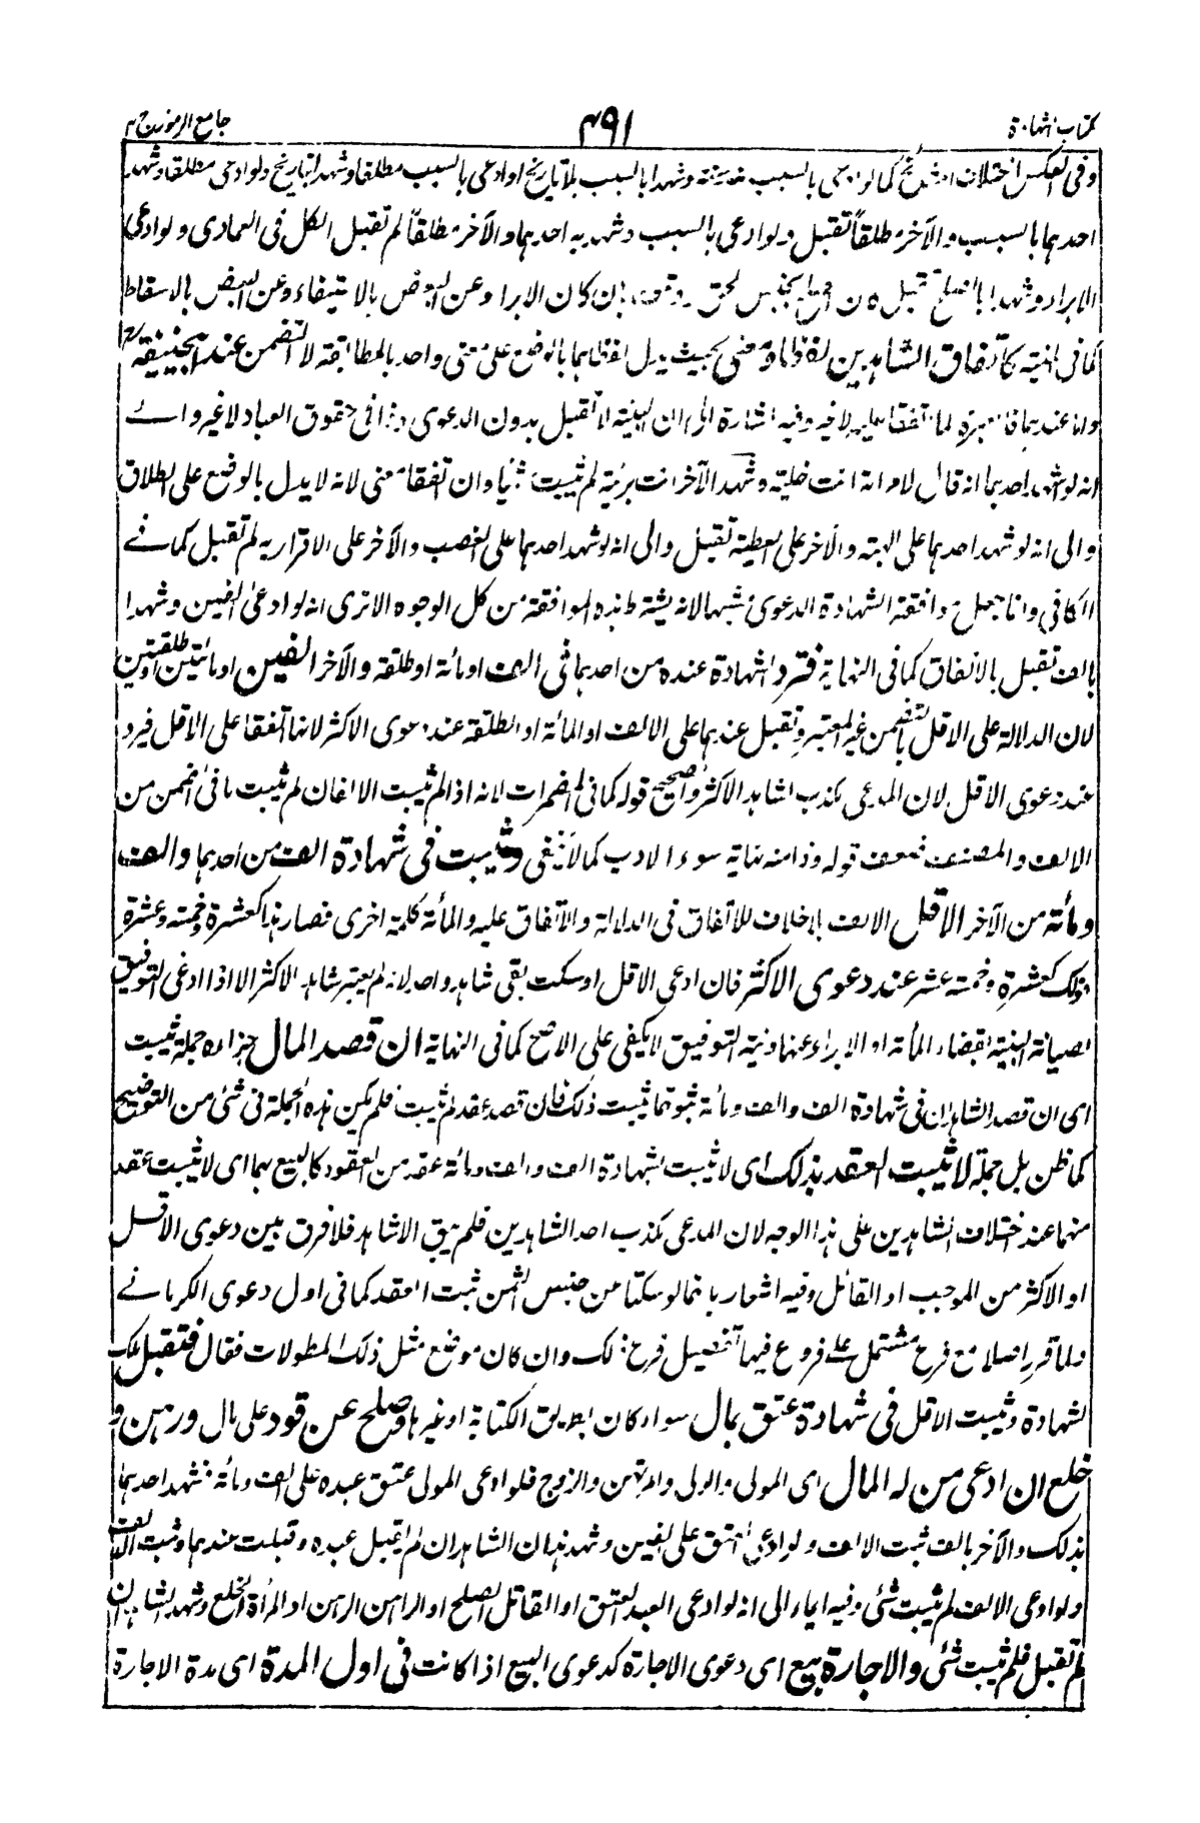 كتاب الشهادة
٤٩١
جامع الرموز ج ٢
وفى العكس اختلاف المشائخ كما لو ادعى بالسبب وشهدا بالسبب بلا تاريخ او ادعى بالسبب مطلقا وشهدا بتاريخ ولو ادعى مطلقا وشهد
احدهما بالسبب والآخر مطلقاً تقبل ولو ادعى بالسبب وشهد به احدهما والآخر مطلقاً لم تقبل الكل فى العمادى ولو ادعى
الابراء وشهدا بالصلح تقبل ان كان بجنس الحق ان كان الابراء عن البعض بالاستيفاء وعن البعض بالاسقاط
كما فى المنية كاتفاق الشاهدين لفظا ومعنى بحيث يدل لفظاهما بالوضع على معنى واحد بالمطابقة لا التضمن عند ابيحنيفة رح
واما عندهما اتفقا عليه لا غير وفيه اشارة الى ان البينة لا تقبل بدون الدعوى وذا فى حقوق العباد لا غير والى
انه لو شهد احدهما انه قال لامرأته انت خلية وشهد الآخر انت برية لم تثبت شئ وان اتفقا معنى لانه لا يدل بالوضع على الطلاق
والى انه لو شهد احدهما على الهبة والآخر على العطية تقبل والى انه لو شهد احدهما على الغصب والآخر على الاقرار به لم تقبل كما فى
الكافى وانما جعل موافقة الشهادة الدعوى مشبها لانه يشترط هذه الموافقة من كل الوجوه الا ترى انه لو ادعى الفين وشهدا
بالف تقبل بالاتفاق كما فى النهاية فترد الشهادة عنده من احدهما فى الف او مائة او طلقة والآخر الفين او مائتين او طلقتين
لان الدلالة على الاقل بالتضمن غير المعتبر وتقبل عندهما على الالف او المائة او الطلقة عند دعوى الاكثر لانهما اتفقا على الاقل فيرد
عند دعوى الاقل لان المدعى يكذب شاهد الاكثر والصحيح قوله كما فى المضمرات لانه اذا لم تثبت الالفان لم تثبت ما فى ضمن من
الالف والمصنف ضعف قوله وذا منه نهاية سوء الادب كما لا يخفى وتثبت فى شهادة الف من احدهما والف
ومائة من الآخر الاقل الالف بلا خلاف للاتفاق فى الدلالة والاتفاق عليه والمائة كلمة اخرى فصار هذا كعشرة وخمسة وعشرة
وذلك كعشرة وخمسة عشر عند دعوى الاكثر فان ادعى الاقل او سكت بقى شاهد واحد لانه لم يعتبر شاهد الاكثر الا اذا ادعى التوفيق
لصيانة البينة بقضاء المائة او الابراء عنها ونية التوفيق لا يكفى على الاصح كما فى النهاية ان قصد المال جزاؤه جملة تثبت
اى ان قصد الشاهدان فى شهادة الف والف ومائة ثبوتها تثبت ذلك فان قصد عقد لم تثبت فلم يكن هذه الجملة فى شئ من التوضيح
كما ظن بل جملة لا تثبت العقد بذلك اى لا تثبت بشهادة الف والف ومائة عقد من العقود كالبيع بهما اى لا تثبت عقد
منهما عند اختلاف الشاهدين على هذا الوجه لان المدعى يكذب احد الشاهدين فلم يبق الا شاهد فلا فرق بين دعوى الاقل
او الاكثر من الموجب او القائل وفيه اشعار بانهما لو سكتا من جنس الثمن ثبت العقد كما فى اول دعوى الكرمانى
ولما قرر اصلا مع فرع مشتمل على فروع فيها تفصيل فرع ذلك وان كان موضع مثل ذلك المطولات فقال فتقبل تلك
الشهادة وتثبت الاقل فى شهادة عتق بمال سواء كان بطريق الكتابة او غيرها وصلح عن قود على مال ورهن و
خلع ان ادعى من له المال اى المولى والولى والمرتهن والزوج فلو ادعى المولى عتق عبده على الف ومائة فشهد احدهما
بذلك والآخر بالف ثبت الالف ولو ادعى العتق على الفين وشهد هذان الشاهدان لم تقبل عنده وقبلت عندهما وثبت الالف
ولو ادعى الالف لم تثبت شئ وفيه ايماء الى انه لو ادعى العبد العتق او القاتل الصلح او الراهن الرهن او المرأة الخلع وشهد الشاهدان
لم تقبل فلم تثبت شئ والاجارة بيع اى دعوى الاجارة كدعوى البيع اذا كانت فى اول المدة اى مدة الاجارة